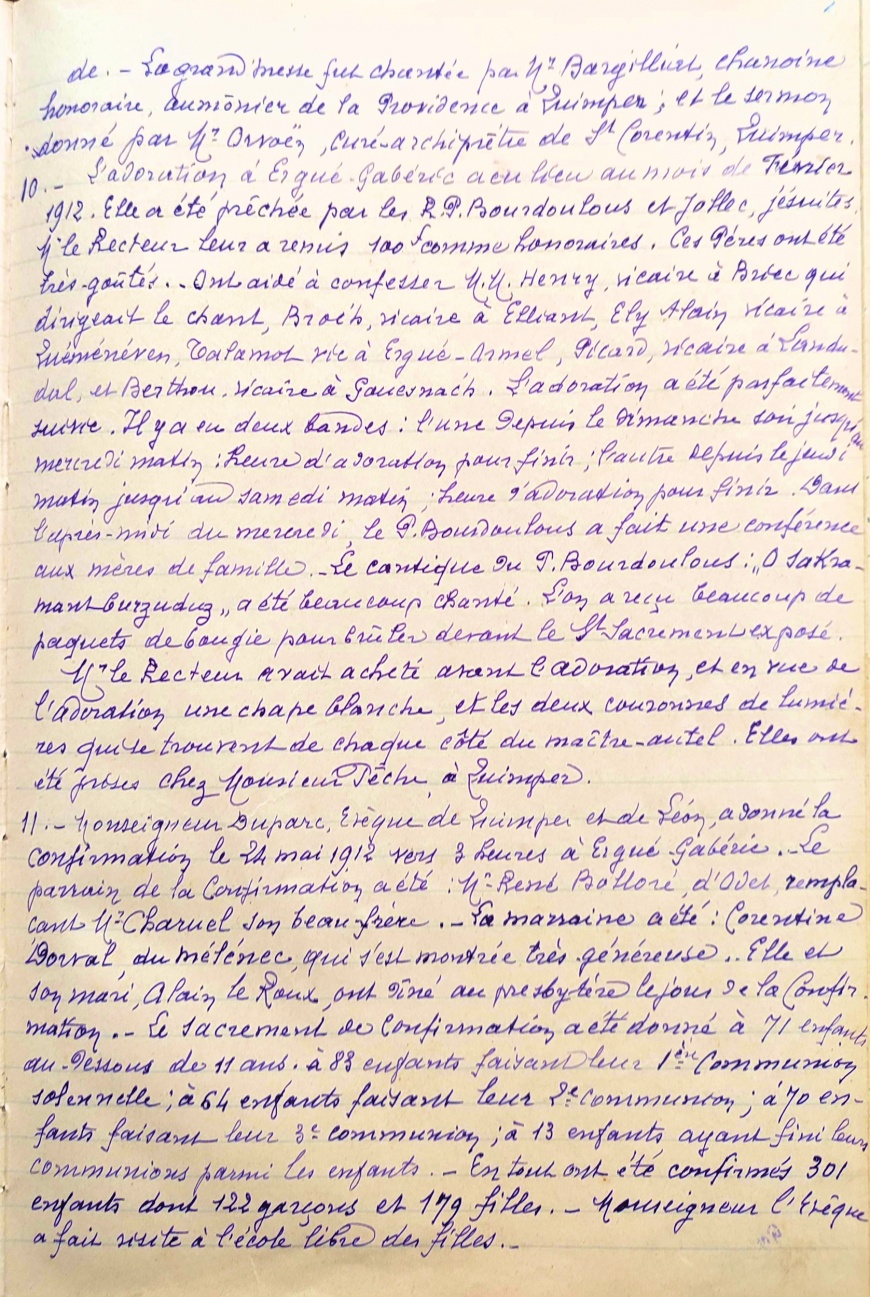 de. – La grand'messe fut chantée par Mr Bargilliat, chanoine
honoraire, aumônier de la Providence à Quimper ; et le sermon
donné par Mr Orvoën, curé-archiprêtre de St Corentin, Quimper.
10. – L'adoration à Ergué-Gabéric a eu lieu au mois de Février
1912. Elle a été prêchée par les R.P. Bourdoulous et Jollec, jésuites.
Mr le Recteur leur a remis 100f comme honoraires. Ces Pères ont été
très-goûtés. – Ont aidé à confesser M.M. Henry, vicaire à Briec qui
dirigeait le chant, Broch, vicaire à Elliant, Ely Alain vicaire à
Quéménéven, Talamot vic à Ergué-Armel, Picard, vicaire à Landu-
dal, et Berthou vicaire à Gouesnach. L'adoration a été parfaitement
suivie. Il y a eu deux bandes : l'une depuis le dimanche soir jusqu'au
mercredi matin : heure d'adoration pour finir ; l'autre depuis le jeudi
matin jusqu'au samedi matin ; heure d'adoration pour finir. Dans
l'après-midi du mercredi, le P. Bourdoulous a fait une conférence
aux mères de famille. – Le cantique du P. Bourdoulous : „O Sakra-
mant burzuduz„ a été beaucoup chanté. L'on a reçu beaucoup de
paquets de bougie pour brûler devant le St Sacrement exposé.
Mr le Recteur avait acheté avant l'adoration, et en vue de
l'adoration une chape blanche, et les deux couronnes de lumiè-
res qui se trouvent de chaque côté du maître-autel. Elles ont
été prises chez Monsieur Pêche, à Quimper.
11. – Monseigneur Duparc, Evêque de Quimper et de Léon, a donné la
confirmation le 24 mai 1912 vers 3 heures à Ergué-Gabéric. – Le
parrain de la Confirmation a été : Mr René Bolloré, d'Odet, rempla-
cant Mr Charuel son beau-frère. – La marraine a été : Corentine
Dorval, du mélénec, qui s'est montrée très-généreuse. . Elle et
son mari, Alain le Roux, ont dîné au presbytère le jour de la Confir-
mation. – Le sacrement de Confirmation a été donné à 71 enfants
au-dessous de 11 ans. à 83 enfants faisant leur 1ère Communion
solennelle ; à 64 enfants faisant leur 2e communion ; à 70 en-
fants faisant leur 3e communion ; à 13 enfants ayant fini leurs
communions parmi les enfants. – En tout ont été confirmés 301
enfants dont 122 garçons et 179 filles. – Monseigneur l'Evêque
a fait visite à l'école libre des filles. –